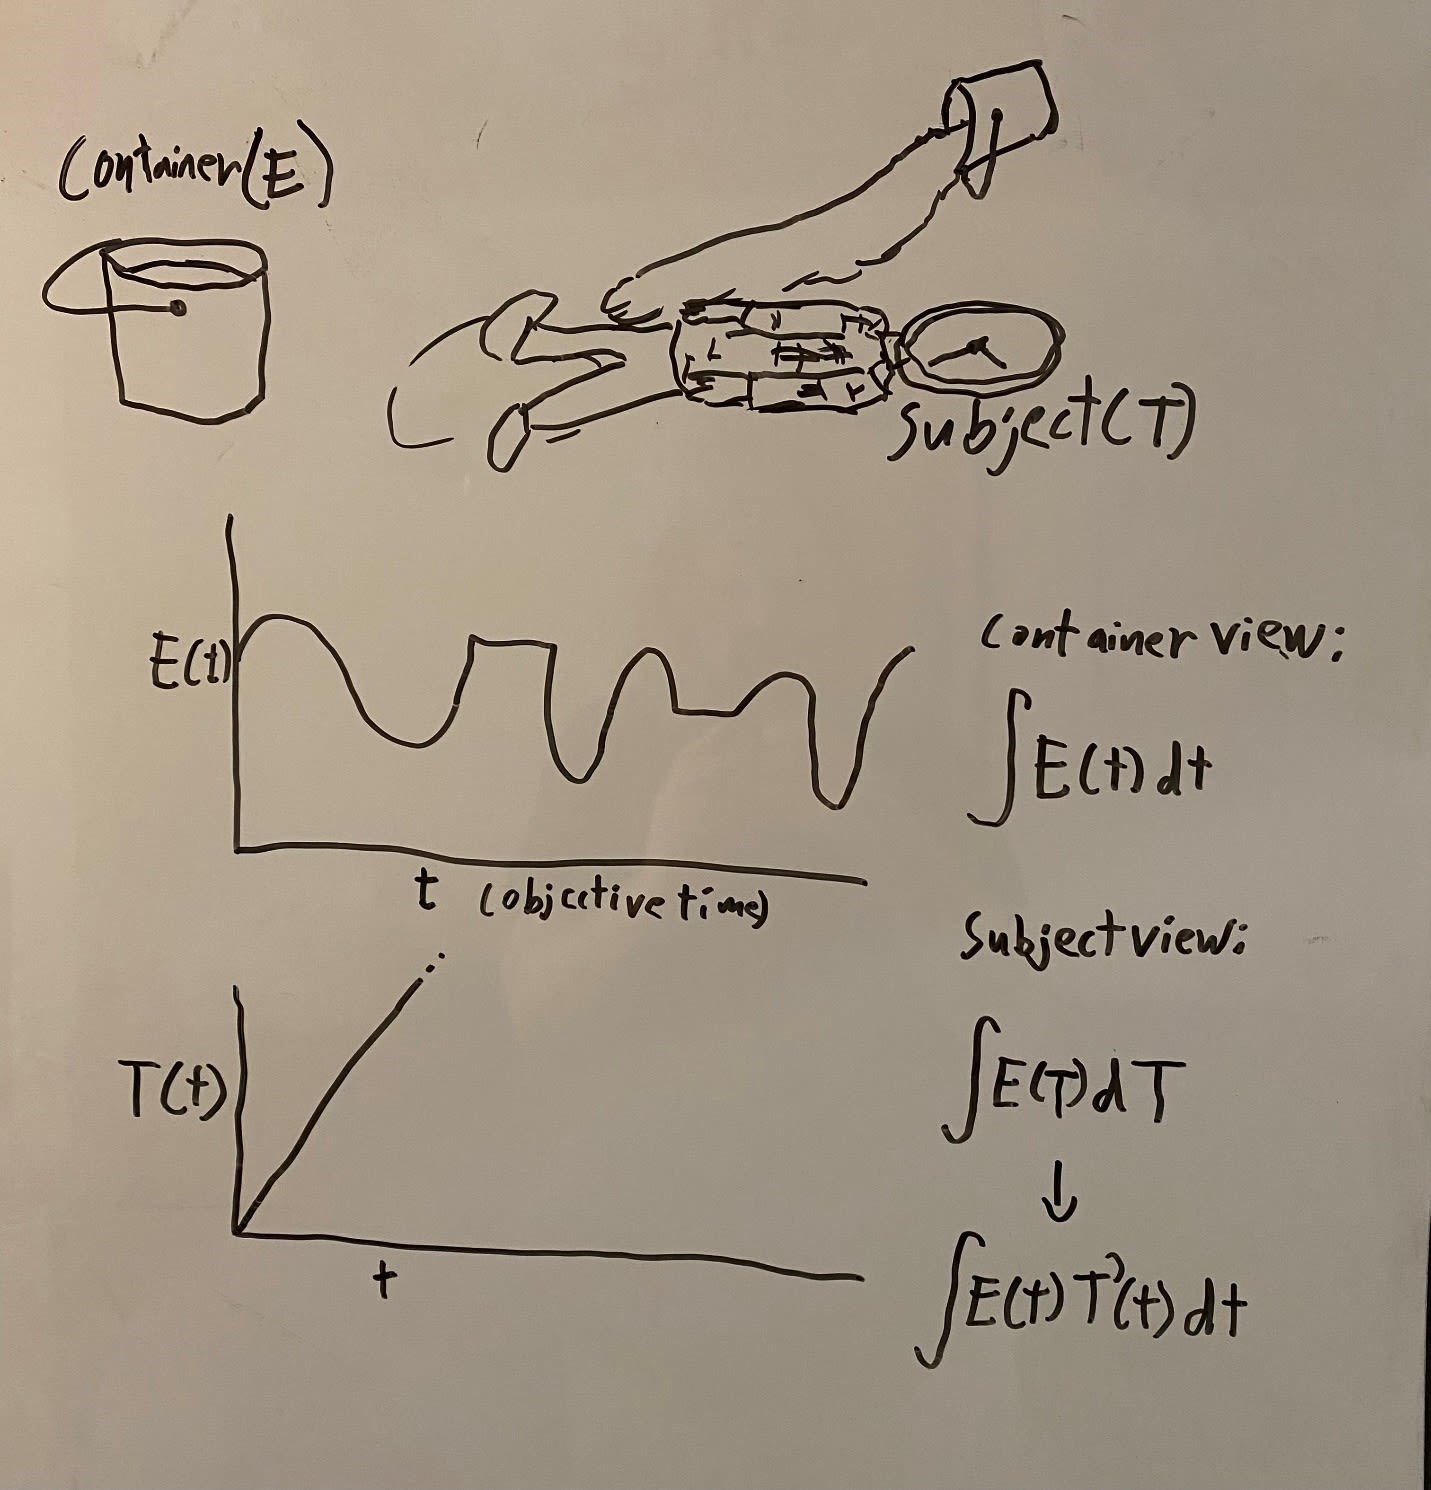 Container(E)
Subject(T)
E(t)
t (objective time)
Container view:
∫E(t)dt
Subject view:
∫E(T)dT
↓
∫E(t)T'(t)dt
T(t)
t